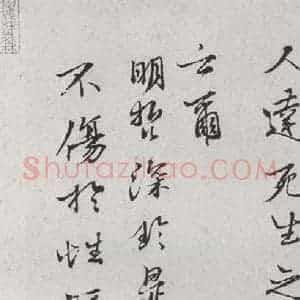 人達死生之
云爾
明哲深於是
不傷於性
Shufazidao.com